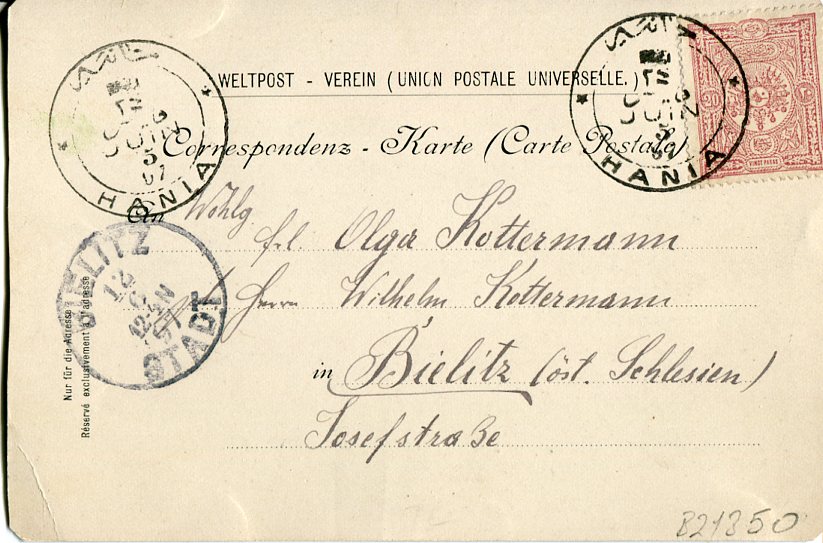 WELTPOST - VEREIN (UNION POSTALE UNIVERSELLE.)
Correspondenz - Karte (Carte Postale)
HANIA
JUIN
3
97
HANIA
JUIN
3
97
VINGT PARAS
20
An Wohlg
frl. Olga Kottermann
Herrn Wilhelm Kottermann
in Bielitz (öst. Schlesien)
Josefstraße
BIELITZ
STADT
12
97
Nur für die Adresse
Réservé exclusivement à l'adresse
B21350